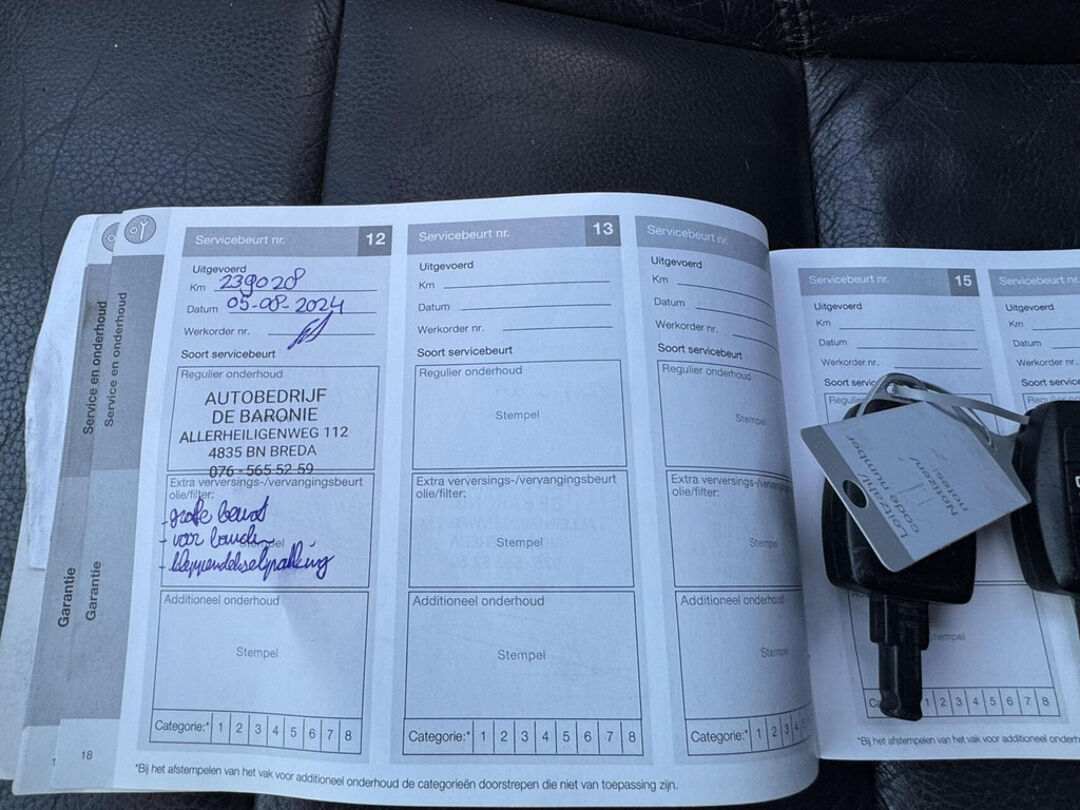 Service en onderhoud
Service en onderhoud
Garantie
Garantie
18
Servicebeurt nr. 12
Uitgevoerd
Km 239028
Datum 05-08-2024
Werkorder nr.
Soort servicebeurt
Regulier onderhoud
AUTOBEDRIJF
DE BARONIE
ALLERHEILIGENWEG 112
4835 BN BREDA
076 - 565 52 59
Extra verversings-/vervangingsbeurt
olie/filter:
- grote beurt
- voor banden
- kleppendekselpakking
Additioneel onderhoud
Stempel
Categorie:* 1 2 3 4 5 6 7 8
Servicebeurt nr. 13
Uitgevoerd
Km
Datum
Werkorder nr.
Soort servicebeurt
Regulier onderhoud
Stempel
Extra verversings-/vervangingsbeurt
olie/filter:
Stempel
Additioneel onderhoud
Stempel
Categorie:* 1 2 3 4 5 6 7 8
Servicebeurt nr.
Uitgevoerd
Km
Datum
Werkorder nr.
Soort servicebeurt
Regulier onderhoud
Stempel
Extra verversings-/vervangings
olie/filter:
Stempel
Additioneel onderhoud
Stempel
Categorie:* 1 2 3 4 5
*Bij het afstempelen van het vak voor additioneel onderhoud de categorieën doorstrepen die niet van toepassing zijn.
Servicebeurt nr. 15
Uitgevoerd
Km
Datum
Werkorder nr.
Soort servic
Regulier
Stempel
1 2 3 4 5 6 7 8
*Bij het afstempelen van het vak voor additioneel onderh
Servicebeurt nr.
Uitgevoerd
Km
Datum
Werkorder nr.
Soort serv
Leitzahl/
code number
Notizen/
notes: